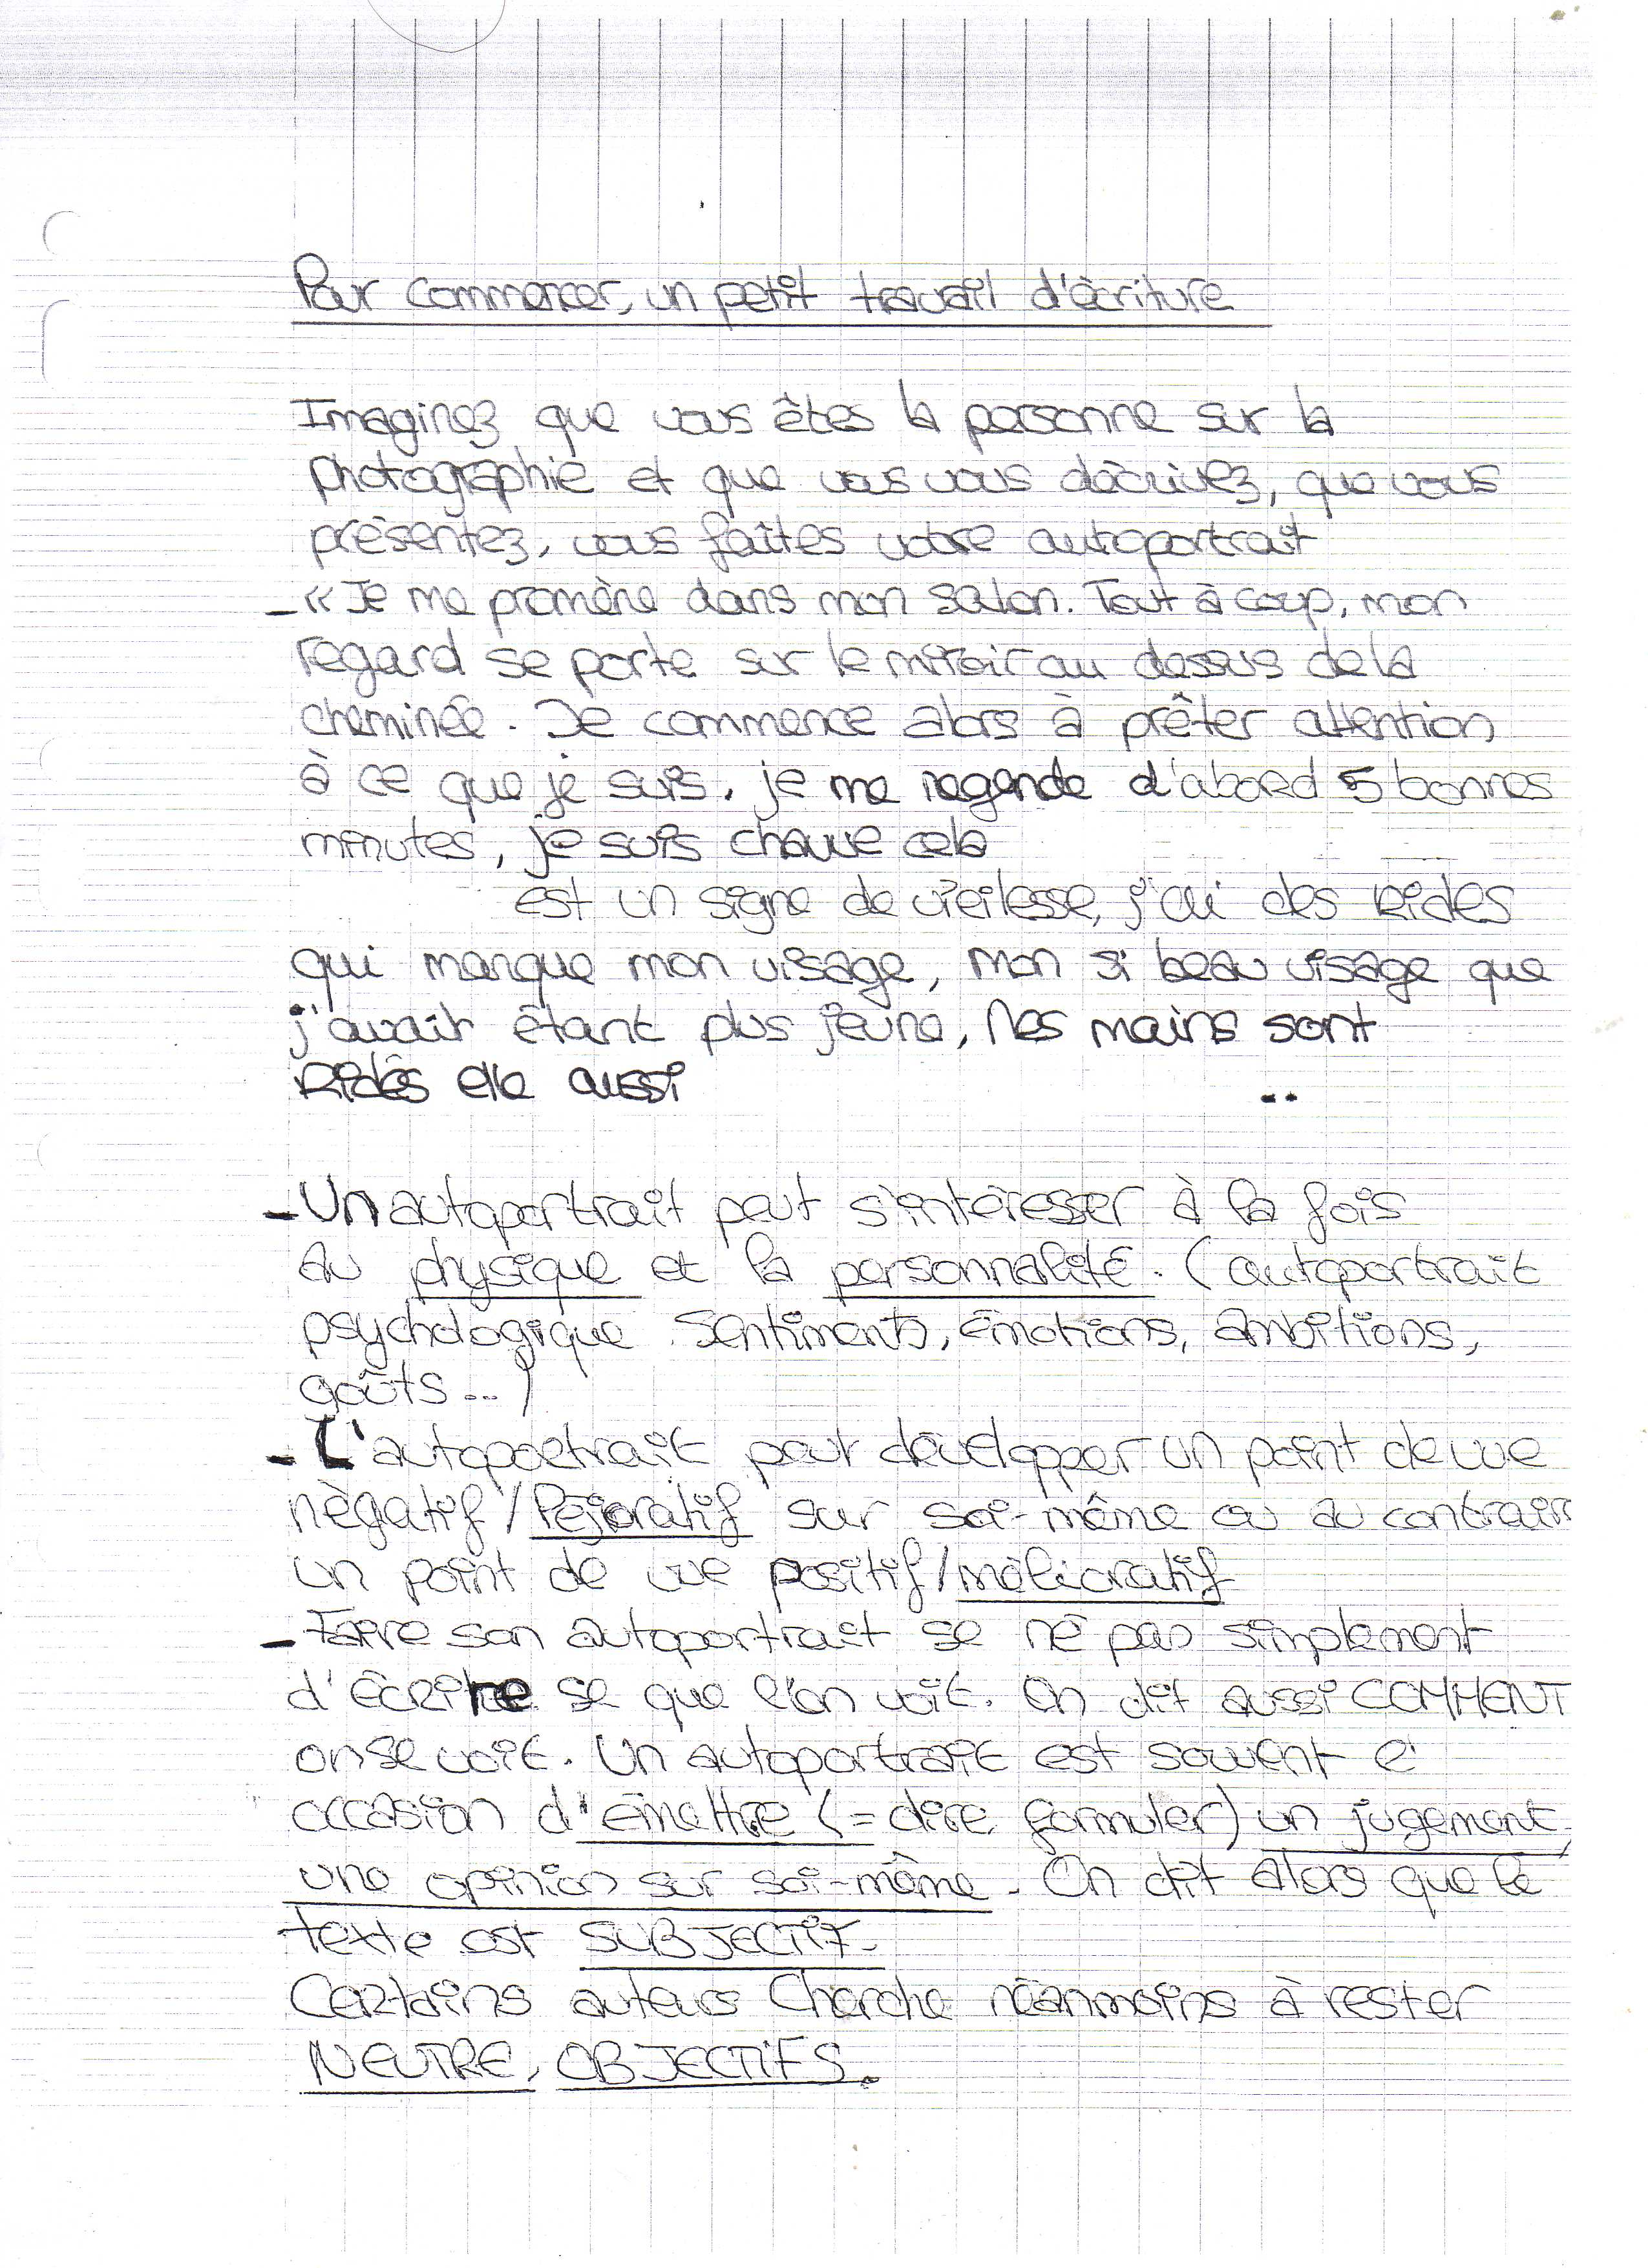 Pour commencer, un petit travail d'écriture
Imaginez que vous êtes la personne sur la
photographie et que vous vous décrivez, que vous
présentez, vous faîtes votre autoportrait
- « Je me promène dans mon salon. Tout à coup, mon
regard se porte sur le miroir au dessus de la
cheminée. Je commence alors à prêter attention
à ce que je suis. je me regarde d'abord 5 bonnes
minutes, je suis chauve cela
est un signe de vieilesse, j'ai des Rides
qui marque mon visage, mon si beau visage que
j'avait étant plus jeune, Mes mains sont
Ridés elle aussi ..
- Un autoportrait peut s'intéresser à la fois
au physique et la personnalité. (autoportrait
psychologique Sentiments, émotions, ambitions,
goûts...)
- L'autoportrait peut développer un point de vue
négatif / Péjoratif sur soi-même ou au contrair
un point de vue positif / mélioratif
- Faire son autoportrait se né pas simplement
d'écrire se que l'on voit. On dit aussi COMMENT
on se voit. Un autoportrait est souvent l'
occasion d'émettre (= dire, formuler) un jugement,
une opinion sur soi-même. On dit alors que le
texte est SUBJECTIF.
Certains auteurs Cherche néanmoins à rester
NEUTRE, OBJECTIFS.